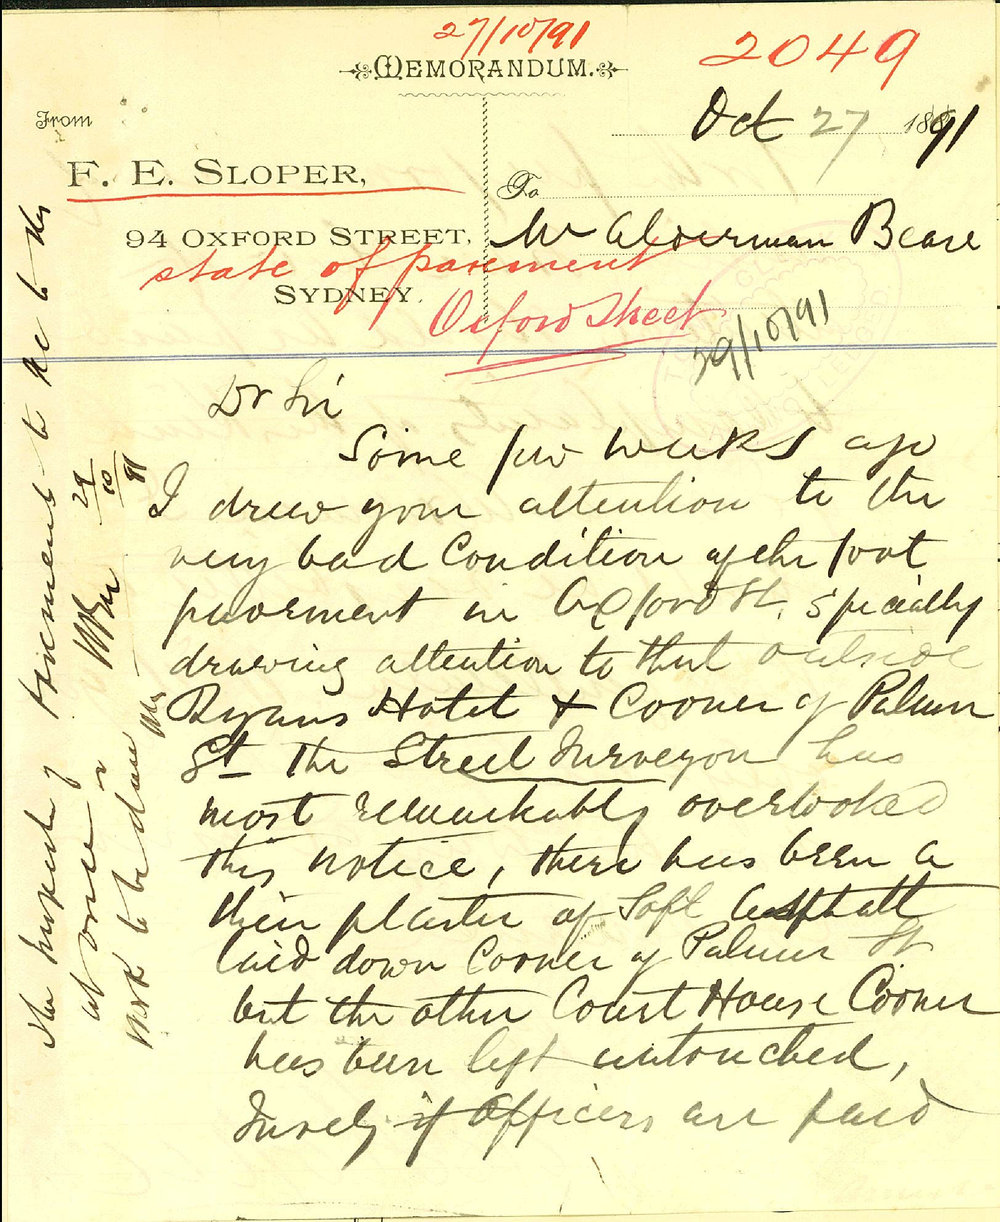 27/10/91
2049
MEMORANDUM.
Oct 27 1891
From
F. E. SLOPER,
To
94 OXFORD STREET,
Mr Alderman Beare
state of pavement
SYDNEY.
Oxford Street
29/10/91
Dr Sir
Some few weeks ago
I drew your attention to the
very bad Condition of the foot
pavement in Oxford St. Specially
drawing attention to that outside
Ryans Hotel & Corner of Palmer
St The Street Surveyor has
most remarkably overlooked
this notice, there has been a
thin plaster of Soft Asphalt
laid down Corner of Palmer St
but the other Court House Corner
has been left untouched,
Surely if Officers are paid
29/10/91
at once
work to be done